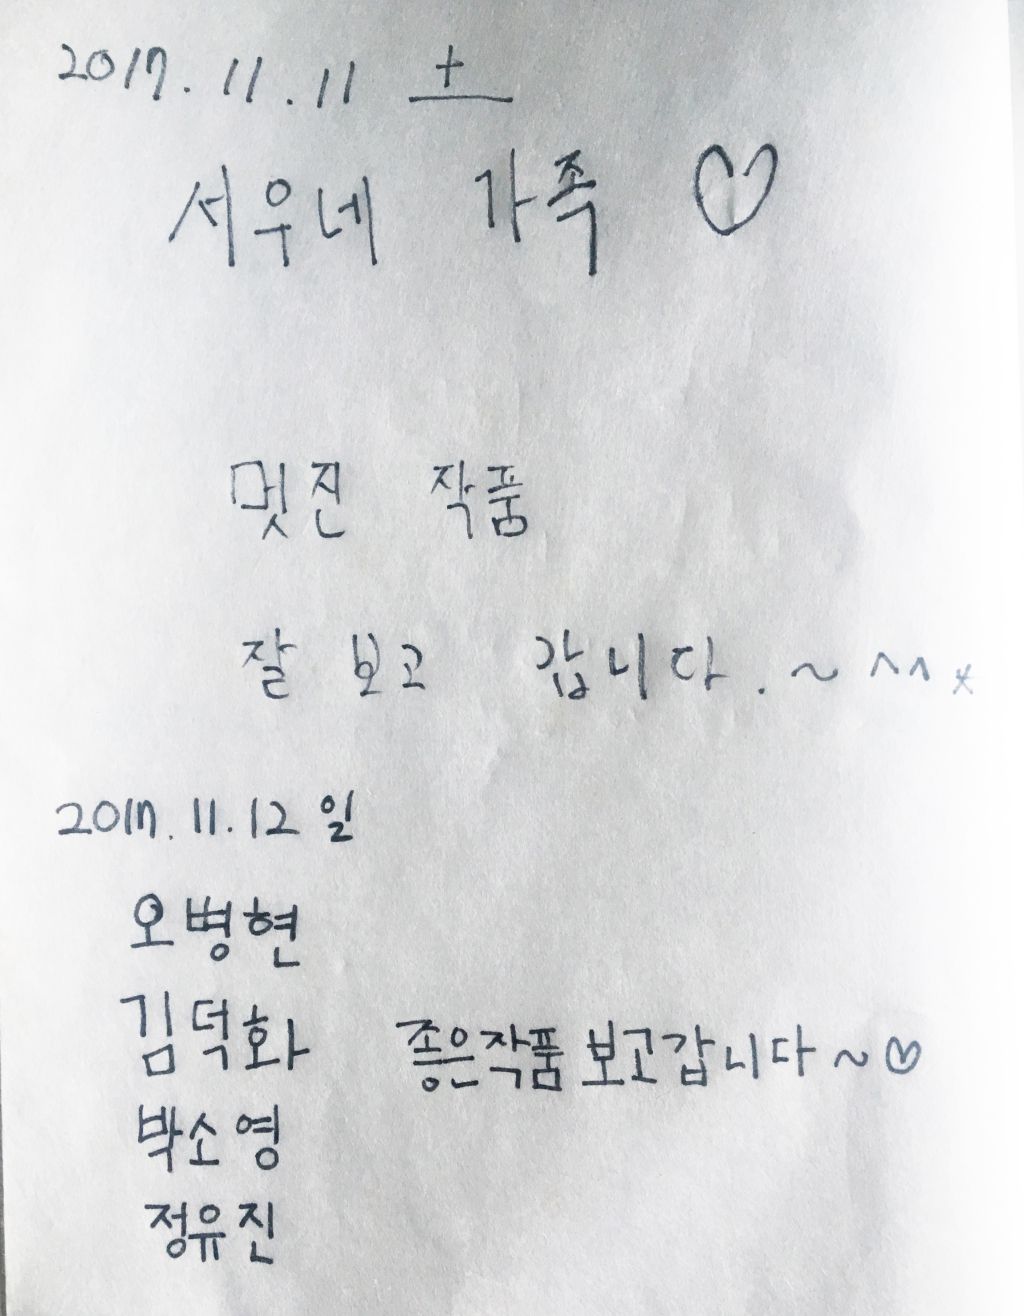 2017. 11. 11 土
서우네 가족 ♡
멋진 작품
잘 보고 갑니다. ~ ^^*
2017. 11. 12 일
오병현
김덕화
좋은작품 보고갑니다~♡
박소영
정유진